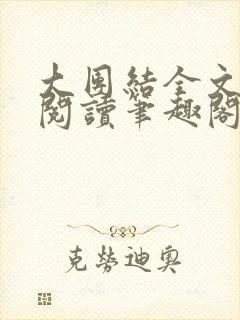 大團結全文
閱讀筆趣閣
克勞迪奧